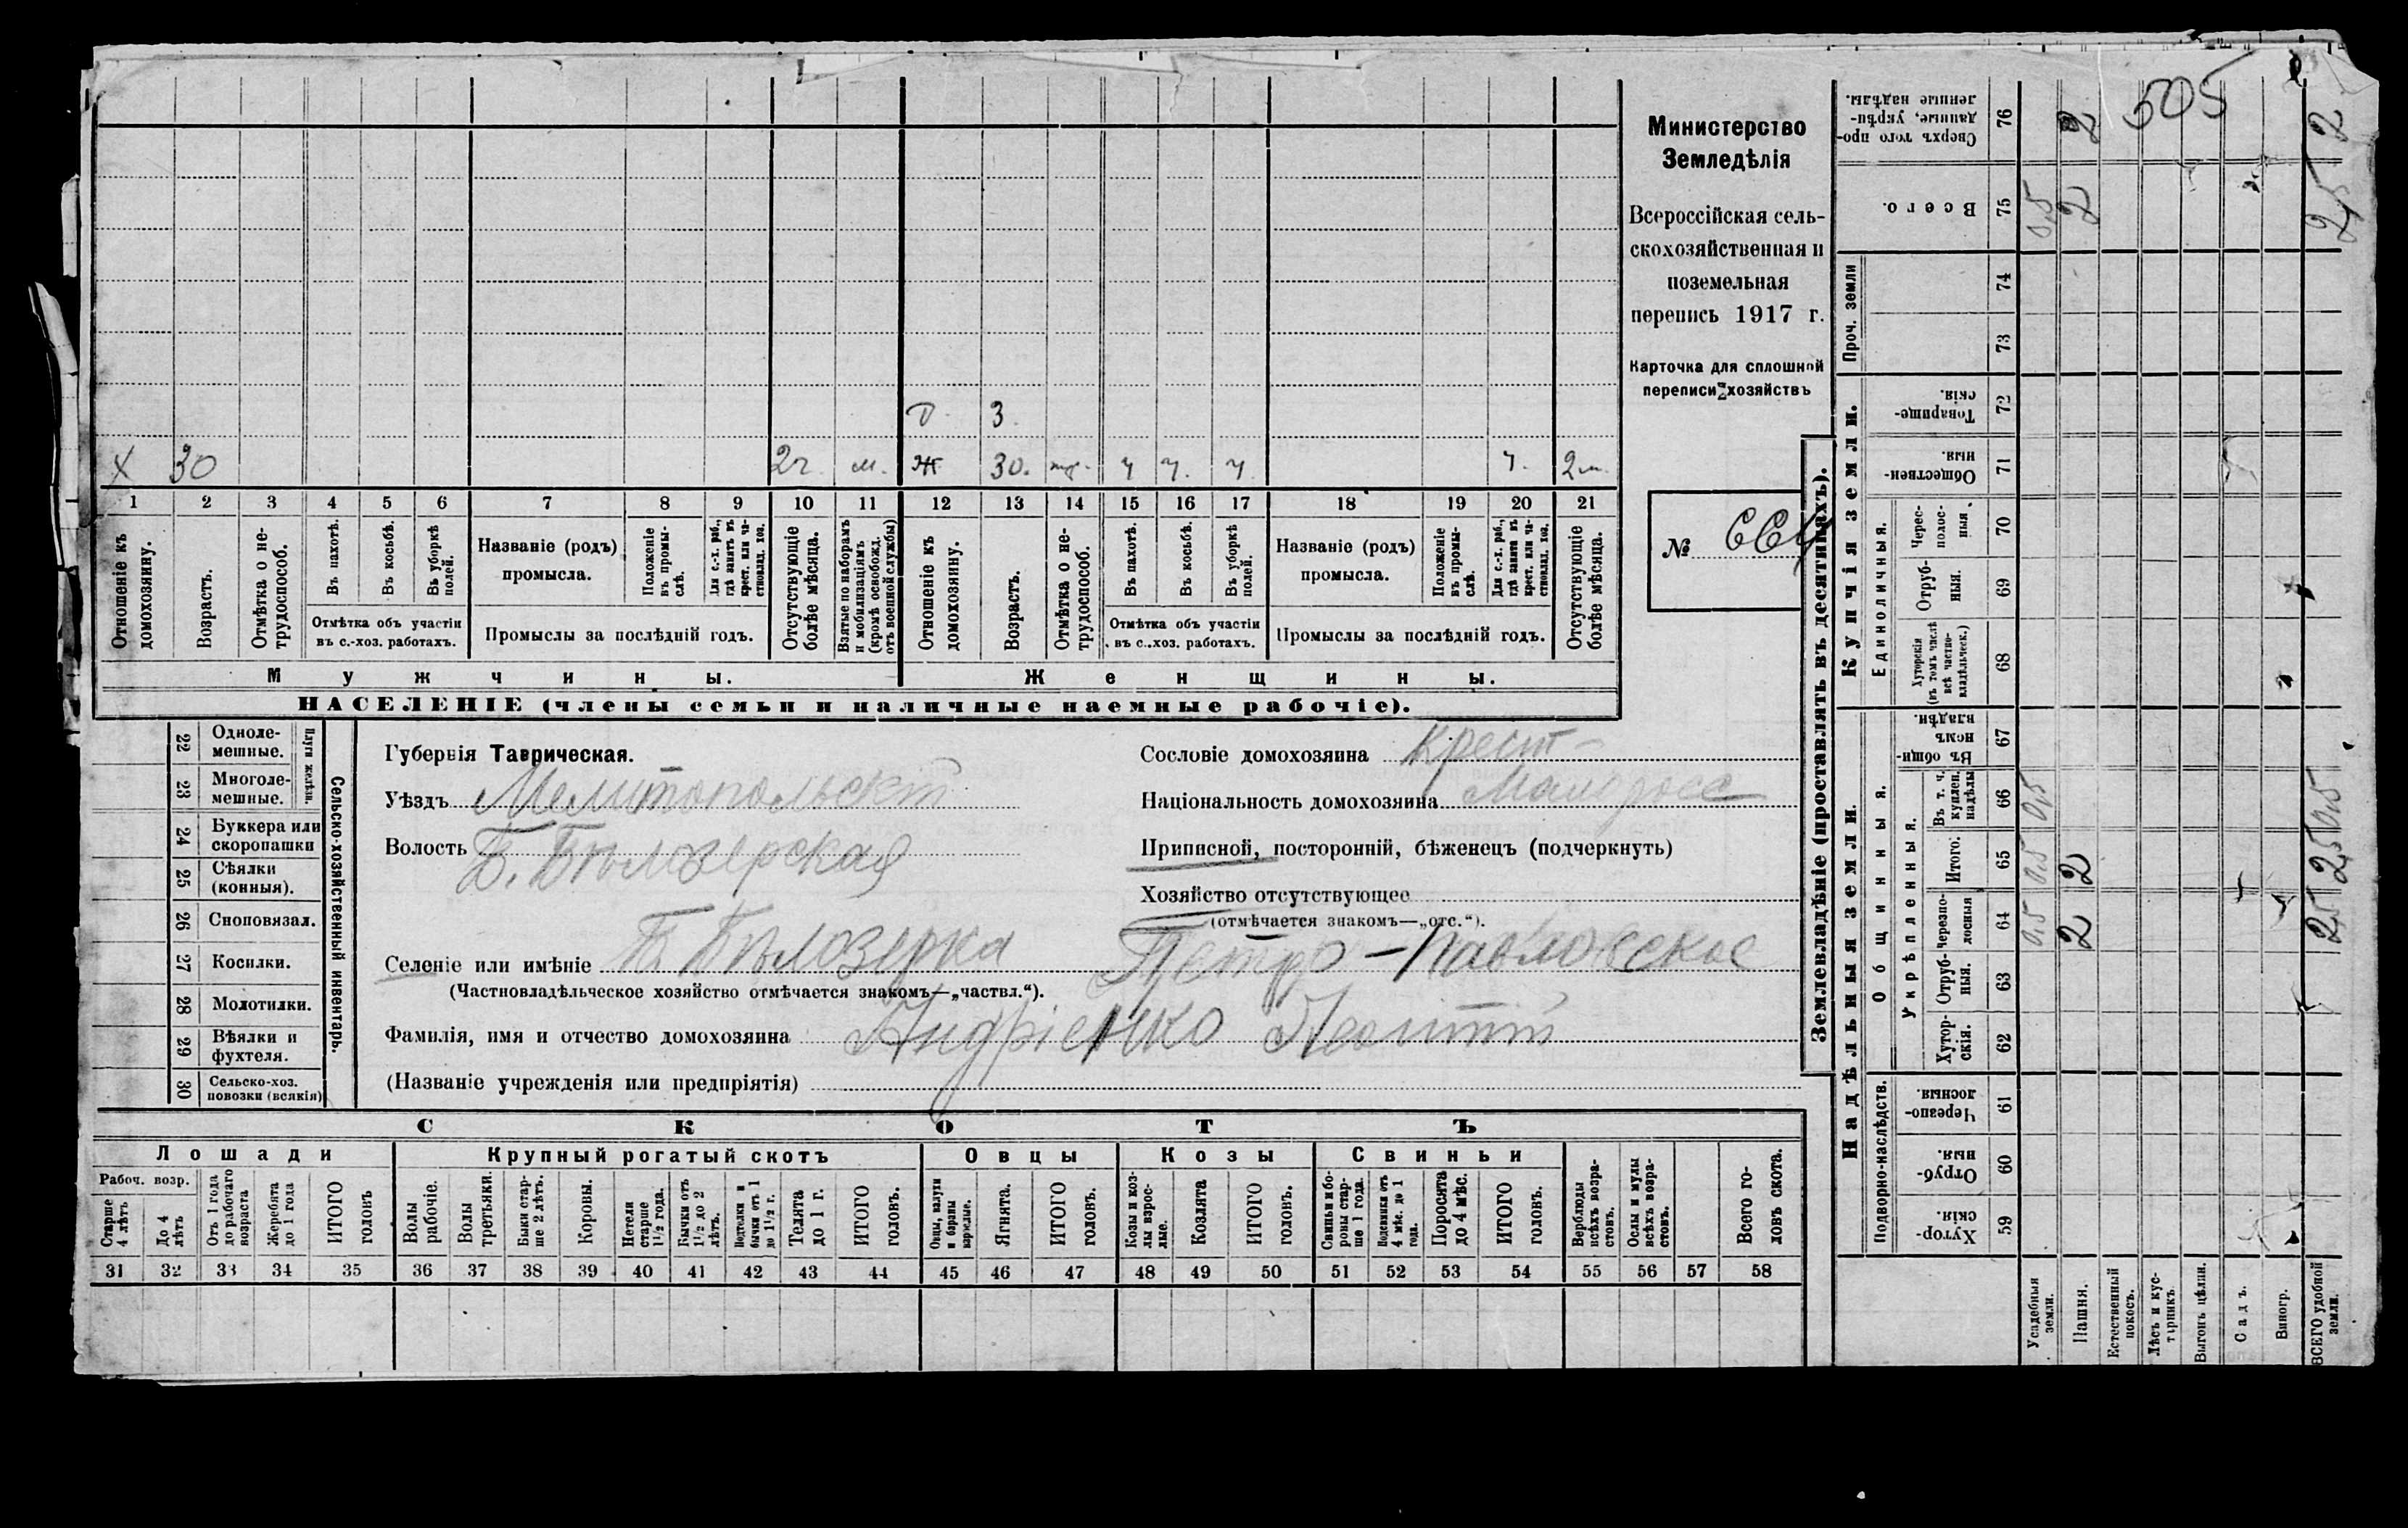 Министерство
Земледѣлія
Всероссійская сель-
скохозяйственная и
поземельная
перепись 1917 г.
Карточка для сплошной
переписи хозяйствъ
№
505
д 3.
х 30 2г. м. ж. 30. ч ч. ч ч. 2м.
1 2 3 4 5 6 7 8 9 10 11 12 13 14 15 16 17 18 19 20 21
Отношеніе къ домохозяину.
Возрастъ.
Отмѣтка о не-трудоспособ.
Въ пахотѣ.
Въ косьбѣ.
Въ уборкѣ полей.
Отмѣтка объ участіи
въ с.-хоз. работахъ.
Названіе (родъ)
промысла.
Положеніе въ промы-слѣ.
Для с.-х. раб., гдѣ занятъ въ крест. или ча-стновлад. хоз.
Промыслы за послѣдній годъ.
Отсутствующіе болѣе мѣсяца.
Взятые по наборамъ и мобилизаціямъ (кромѣ освобожд. отъ военной службы)
Отношеніе къ домохозяину.
Возрастъ.
Отмѣтка о не-трудоспособ.
Въ пахотѣ.
Въ косьбѣ.
Въ уборкѣ полей.
Отмѣтка объ участіи
въ с.-хоз. работахъ.
Названіе (родъ)
промысла.
Положеніе въ промы-слѣ.
Для с.-х. раб., гдѣ занята въ крест. или ча-стновлад. хоз.
Промыслы за послѣдній годъ.
Отсутствующіе болѣе мѣсяца.
Мужчины. Женщины.
НАСЕЛЕНІЕ (члены семьи и наличные наемные рабочіе).
Сельско-хозяйственный инвентарь.
Плуги желѣзн.
22 Одноле-мешные.
23 Многоле-мешные.
24 Буккера или скоропашки
25 Сѣялки (конныя).
26 Сноповязал.
27 Косилки.
28 Молотилки.
29 Вѣялки и фухтеля.
30 Сельско-хоз. повозки (всякія)
Губернія Таврическая.
Уѣздъ Мелитопольскій
Волость Б. Бѣлозерская
Селеніе или имѣніе Б. Бѣлозерка Петро-Павловское
(Частновладѣльческое хозяйство отмѣчается знакомъ—„частвл.“).
Фамилія, имя и отчество домохозяина Андріенко Леонтій
(Названіе учрежденія или предпріятія)
Сословіе домохозяина Крест-
Національность домохозяина Малоросс
Приписной, посторонній, бѣженец (подчеркнуть)
Хозяйство отсутствующее
(отмѣчается знакомъ—„отс.“).
СКОТЪ
Лошади Крупный рогатый скотъ Овцы Козы Свиньи
Рабоч. возр.
Старше 4 лѣтъ
До 4 лѣтъ
Отъ 1 года до рабочаго возраста
Жеребята до 1 года
ИТОГО головъ
Волы рабочіе.
Волы третьяки.
Быки стар-ше 2 лѣтъ.
Коровы.
Нетели старше 1½ года.
Бычки отъ 1½ до 2 лѣтъ.
Подтелки и бычки отъ 1 до 1½ г.
Телята до 1 г.
ИТОГО головъ.
Овцы, валухи и бараны взрослые.
Ягнята.
ИТОГО головъ.
Козы и коз-лы взрос-лые.
Козлята
ИТОГО головъ.
Свиньи и бо-ровы стар-ше 1 года.
Подсвинки отъ 4 мѣс. до 1 года.
Поросята до 4 мѣс.
ИТОГО головъ.
Верблюды всѣхъ возра-стовъ.
Ослы и мулы всѣхъ возра-стовъ.
Всего го-ловъ скота.
31 32 33 34 35 36 37 38 39 40 41 42 43 44 45 46 47 48 49 50 51 52 53 54 55 56 57 58
Землевладѣніе (проставлять въ десятинахъ).
Надѣльныя земли. Купчія земли. Проч. земли
Подворно-наслѣдств. Общинныя. Единоличныя.
Укрѣпленныя.
Хутор-скія. 59
Отруб-ныя. 60
Черезпо-лосныя. 61
Хутор-скія. 62
Отруб-ныя. 63
Черезпо-лосныя 64 0,5 2 2,5
Итого. 65 0,5 2 2,5
Въ т. ч. куплен. надѣлы 66 0,5 0,5
Въ общин-номъ владѣн. 67
Хуторскія (въ томъ числѣ всѣ частно-владѣльческ.) 68
Отруб-ныя. 69
Черес-полос-ныя 70
Обществен-ныя. 71
Товарище-скія. 72
73
74
Всего. 75 0,5 2 2,5
Сверхъ того про-данные, укрѣп-ленные надѣлы. 76 2 2
Усадебныя земли.
Пашня.
Естественный покосъ.
Лѣсъ и кус-тарникъ.
Выгонъ цѣлин.
Садъ.
Виногр.
ВСЕГО удобной земли.